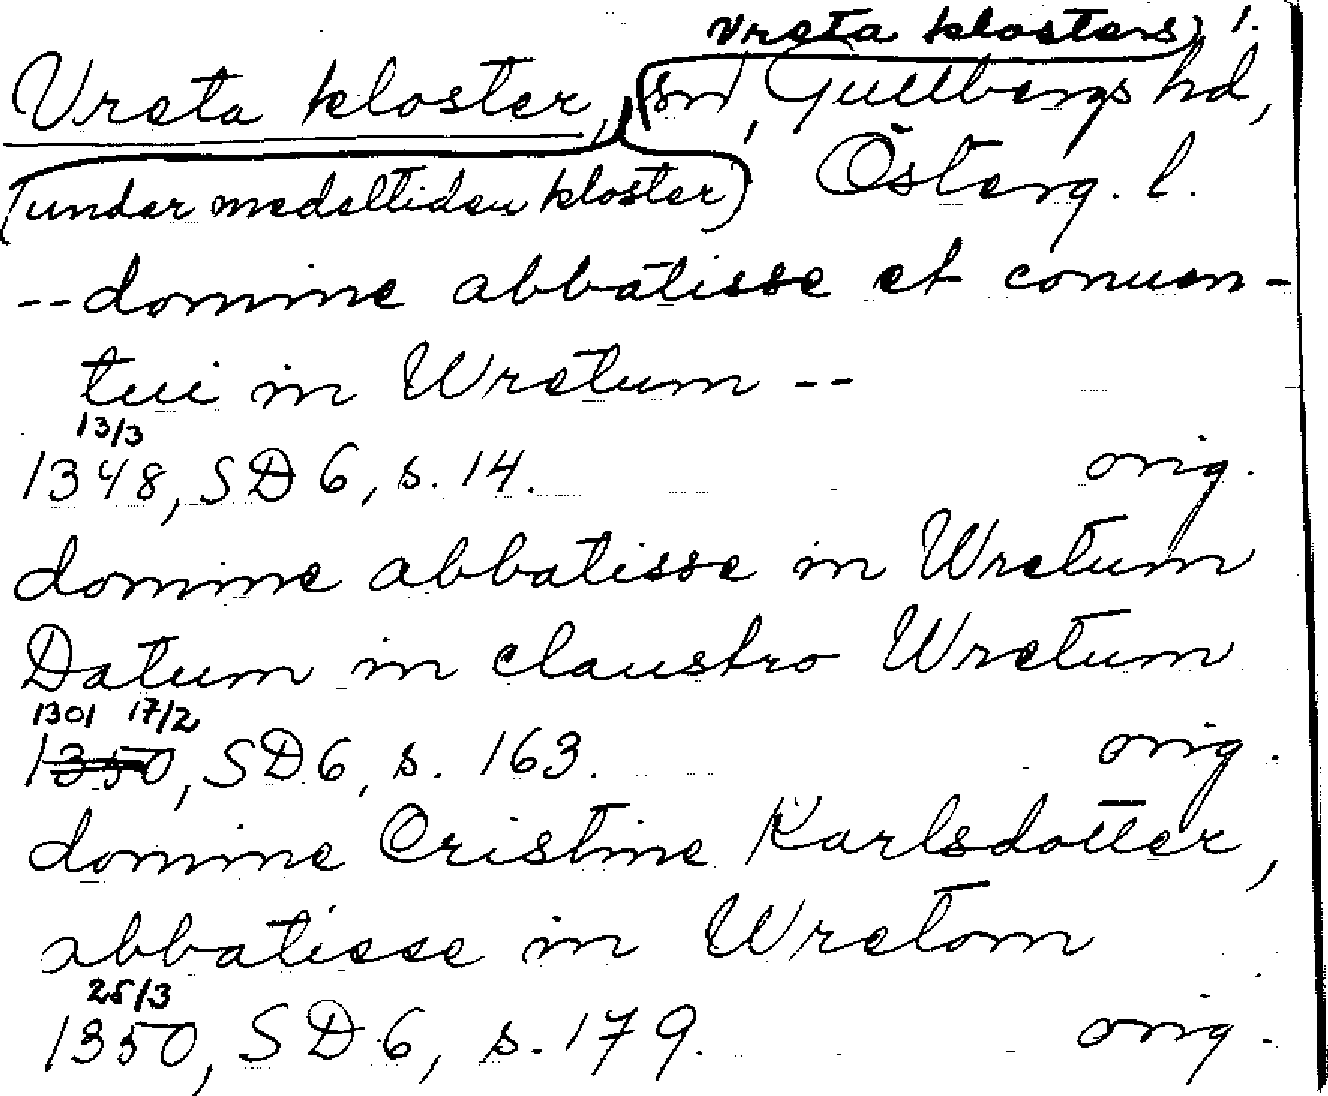 Vreta klosters) l.
Vreta kloster, sn, Gullbergs hd,
(under medeltiden kloster) Österg. l.
-- domine abbatisse et conuen-
tui in Wretum --
13/3
1348, SD 6, s. 14. orig.
domine abbatisse in Wretum
Datum in claustro Wretum
1301 17/2
1350, SD 6, s. 163. orig.
domine Cristine Karlsdotter,
abbatisse in Wretom
25/3
1350, SD 6, s. 179. orig.